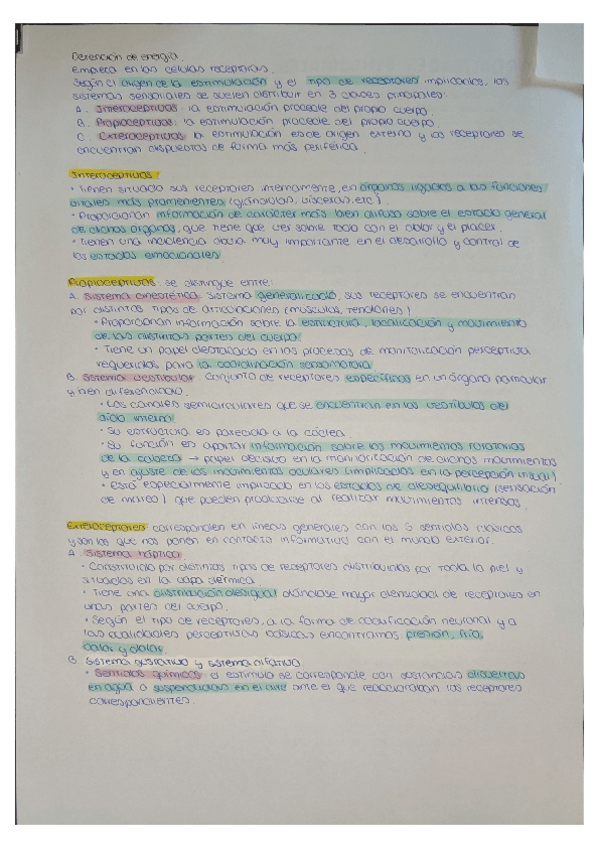 Detención de energía
Empieza en las células receptoras.
Según el origen de la estimulación y el tipo de receptores implicados, los
sistemas sensoriales se suelen distribuir en 3 clases principales:
A. Interoceptivos: la estimulación procede del propio cuerpo.
B. Propioceptivos: la estimulación procede del propio cuerpo.
C. Exteroceptivos: la estimulación es de origen externo y los receptores se
encuentran dispuestos de forma más periférica.
Interoceptivos:
• Tienen situado sus receptores internamente, en órganos ligados a las funciones
vitales más prominentes (glándulas, vísceras, etc).
• Proporcionan información de carácter más bien difuso sobre el estado general
de dichos órganos, que tiene que ver sobre todo con el dolor y el placer.
• Tienen una incidencia muy importante en el desarrollo y control de
los estados emocionales.
Propioceptivos: se distingue entre:
A. Sistema cinestético. Sistema generalizado, sus receptores se encuentran
por distintos tipos de articulaciones (músculos, tendones)
• Proporcionan información sobre la estructura, localización y movimiento
de las distintas partes del cuerpo.
• Tiene un papel destacado en los procesos de monitorización perceptiva
requeridos para la coordinación sensomotora.
B. Sistema vestibular. Conjunto de receptores específicos en un órgano particular
y bien diferenciado.
• Los canales semicirculares que se encuentran en los vestíbulos del
oído interno.
• Su estructura es parecida a la cóclea.
• Su función es aportar información sobre los movimientos rotatorios
de la cabeza → papel decisivo en la monitorización de dichos movimientos
y en ajuste de los movimientos oculares (implicados en la percepción visual)
• Está especialmente implicado en los estados de desequilibrio (sensación
de mareo) que pueden producirse al realizar movimientos intensos.
Exteroceptores corresponden en líneas generales con los 5 sentidos clásicos
y son los que nos ponen en contacto informativo con el mundo exterior.
A. Sistema háptico.
• Constituido por distintos tipos de receptores distribuidos por toda la piel y
situados en la capa dérmica.
• Tiene una distribución desigual dándose mayor densidad de receptores en
unas partes del cuerpo.
• Según el tipo de receptores, a la forma de codificación neuronal y a
las cualidades perceptivas básicas encontramos: presión, frío,
calor y dolor.
B. Sistema gustativo y sistema olfativo
• Sentidos químicos: el estímulo se corresponde con sustancias disueltas
en agua o suspendidas en el aire ante el que reaccionan los receptores
correspondientes.